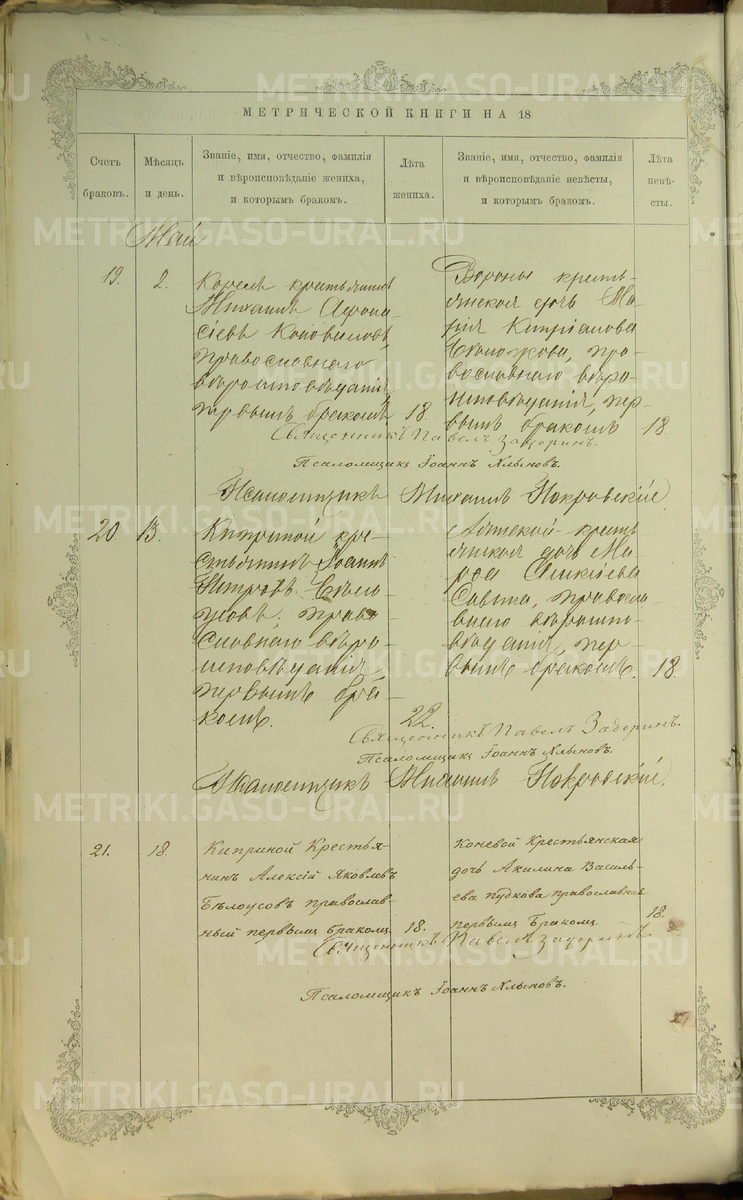 METRIKI.GASO-URAL.RU
МЕТРИЧЕСКОЙ КНИГИ НА 18
Счетъ браковъ.
Мѣсяцъ и день.
Званіе, имя, отчество, фамилія и вѣроисповѣданіе жениха, и которымъ бракомъ.
Лѣта жениха.
Званіе, имя, отчество, фамилія и вѣроисповѣданіе невѣсты, и которымъ бракомъ.
Лѣта невѣ-сты.
Май
19. 2.
крестьянинъ
Михаилъ Афона-
сіевъ Коноваловъ,
православнаго
вѣроисповѣданія,
первымъ бракомъ. 18.
кресть-
янская дочь Ма-
рія Кипріанова
православнаго вѣро-
исповѣданія, пер-
вымъ бракомъ 18
Священникъ Павелъ Задоринъ.
Псаломщикъ Іоаннъ Хлыновъ.
Псаломщикъ Михаилъ Покровскій.
20 13.
Киприной кре-
стьянинъ Іоаннъ
Петровъ Бѣло-
усовъ, право-
славнаго вѣро-
исповѣданія,
первымъ бра-
комъ. 22.
кресть-
янская дочь Ма-
Савина, правосла-
внаго вѣроиспо-
вѣданія, пер-
вымъ бракомъ. 18.
Священникъ Павелъ Задоринъ.
Псаломщикъ Іоаннъ Хлыновъ.
Псаломщикъ Михаилъ Покровскій.
21. 18.
Киприной Крестья-
нинъ Алексій Яковлевъ
Бѣлоусовъ православ-
ный первымъ бракомъ. 18.
Коневой Крестьянская
дочь Акилина Василь-
ева Пудкова православная
первымъ бракомъ. 18.
Священникъ Павелъ Задоринъ.
Псаломщикъ Іоаннъ Хлыновъ.